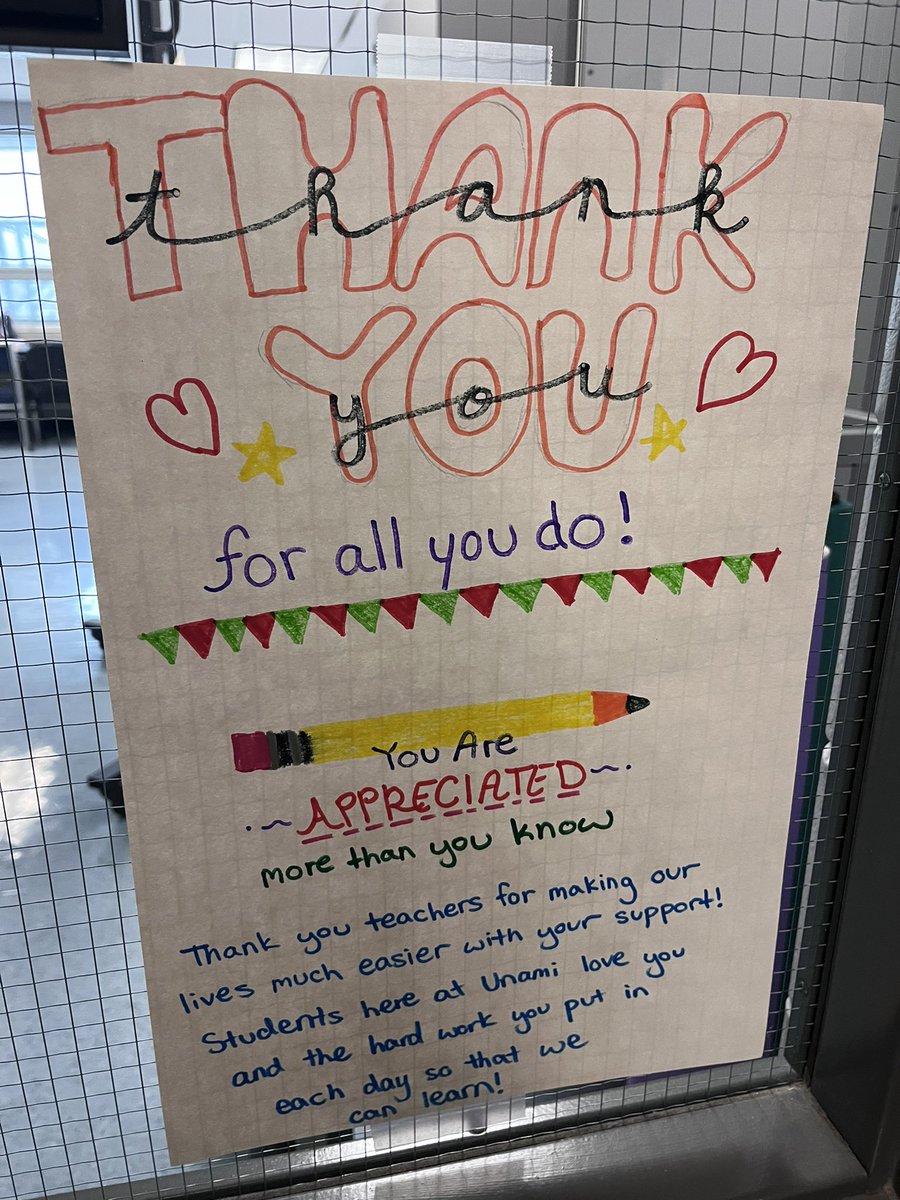 THANK
thank
YOU
you
for all you do!
You Are
APPRECIATED
more than you know
Thank you teachers for making our
lives much easier with your support!
Students here at Unami love you
and the hard work you put in
each day so that we
can learn!